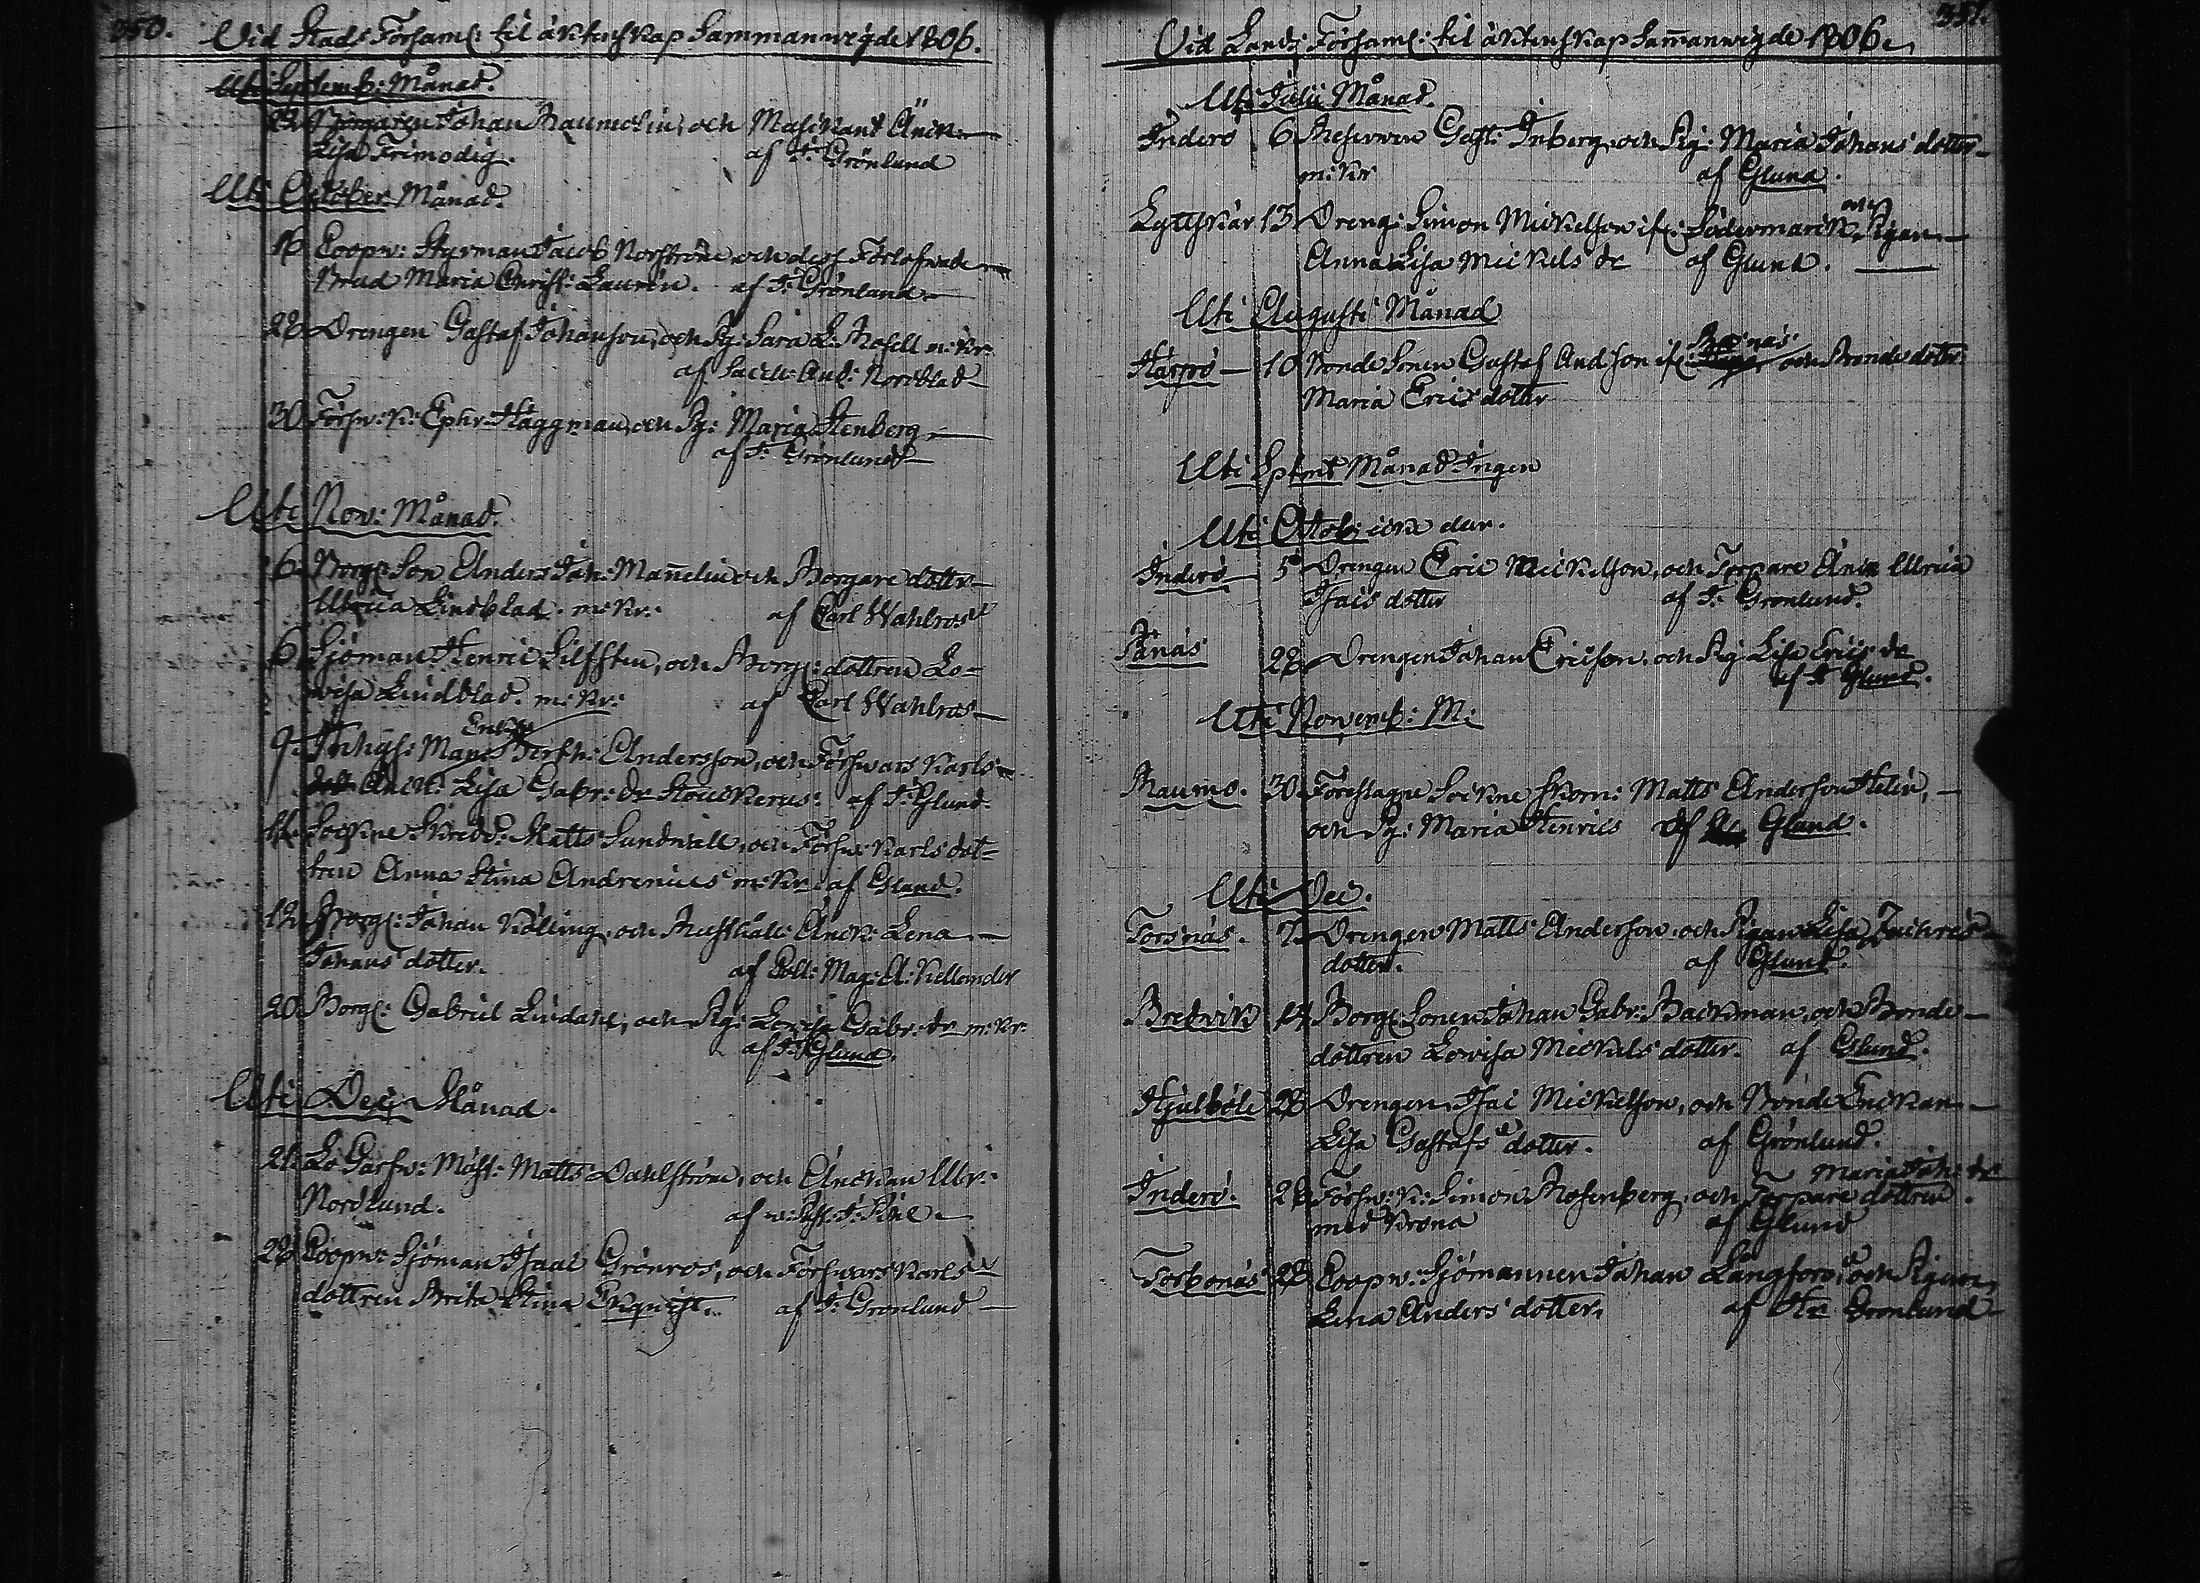 350.
Vid Stads Församl: til äktenskap Sammanwigde 1806.
Uti Septemb: Månad.
22 Borgaren Johan Raumolin, och Musikant Änck:
Lisa Frimodig. af J: Grönlund
Uti October Månad.
16 Coopv: Styrman Jacob Norström och dess Förlofwade
Brud Maria Christ: Laurén. af J: Grönland
22 Drengen Gustaf Johansson, och Pig: Sara L: Rosell m: Kr:
af Norrblad
30 Förfw: K: Ephr: Häggman, och Pig: Maria Stenberg
af J: Grönlund
Uti Nov: Månad.
6. Borg: Son Anders Joh: Mannelin och Borgare dotter
Ulrica Lindblad. m: Kr: af Carl Wahlros
6 Sjöman Henric Lilfsten, och Borg: dottren Lo-
wisa Lindblad. m: Kr: af Carl Wahlros
Enkl:
9. Inhys: Man Andersson, och Förswars Karls
Änck: Lisa Gabr: dr af J: Glund.
11. Sockne Skredd: Matts Sundwall, och Förfw: Karls dot-
tren Anna Stina Andrenius m: Kr: af Glund.
12 Borg: Johan Kölling, och Änck: Lena
Johans dotter. af Coll: Mag: A: Kellander
20 Borg: Gabriel Lindahl, och Pig: Lowisa Gabr: dr m: Kr:
af J: Glund.
Uti Dec: Månad.
21 Matts Dahlström, och Änckan Ulr:
Nordlund. af
28 Coopv: Sjöman Isaac Grönros, och Förswars Karls
dottren Brita Stina Ekqvist. af J: Grönlund
351.
Vid Lands Församl: til äktenskap Sammanwigde 1806.
Uti Julii Månad.
Inderö 6 Reserven Gust: Inberg, och Pig: Maria Johans dotter
m: Kr af Glund.
Lyttskär 13 Dreng: Simon Mickelson if: Södermark och Pigan
Anna Lisa Mickels dr af Glund.
Uti Augusti Månad
Härpö 10 Bonde Sonen Gustaf Andson if: Bosnäs och Bonde dotter
Maria Erics dotter
Uti Septmb Månad Ingen
Uti Octob:
Inderö 5 Drengen Eric Mickelson, och Torpare Änk Ulrica
Isacs dotter af J: Grönlund.
Pänäs 28 Drengen Johan Ericson, och Pig: Lisa Erics dr
af J Glund.
Uti Novemb: M:
Raumo. 30 Föreslagne Sockne Matts Anderson Helin,
och Pig: Maria Henrics af Glund.
Uti Dec.
Torsnäs. 7 Drengen Matts Anderson, och Pigan Lisa Zachris
dotter. af Glund.
Bredvik 14 Borg: Sonen Johan Gabr: Backman, och Bonde
dottren Lowisa Mickels dotter. af Glund.
Hjulböle 28 Drengen Isac Mickelson, och Bonde Enckan
Lisa Gustafs dotter. af Grönlund.
Maria Joh: dr
Inderö. 28 Förfw: K: Simon Rosenberg, och Torpare dottren.
med Krona af Glund
Torbonäs 28 Coopv: Sjömannen Johan Långfors, och Pigan
Lena Anders dotter, af Hr Grönlund